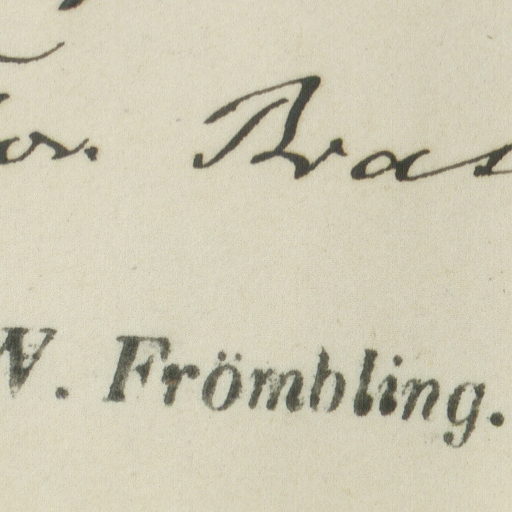 or. Bras
W. Frömbling.